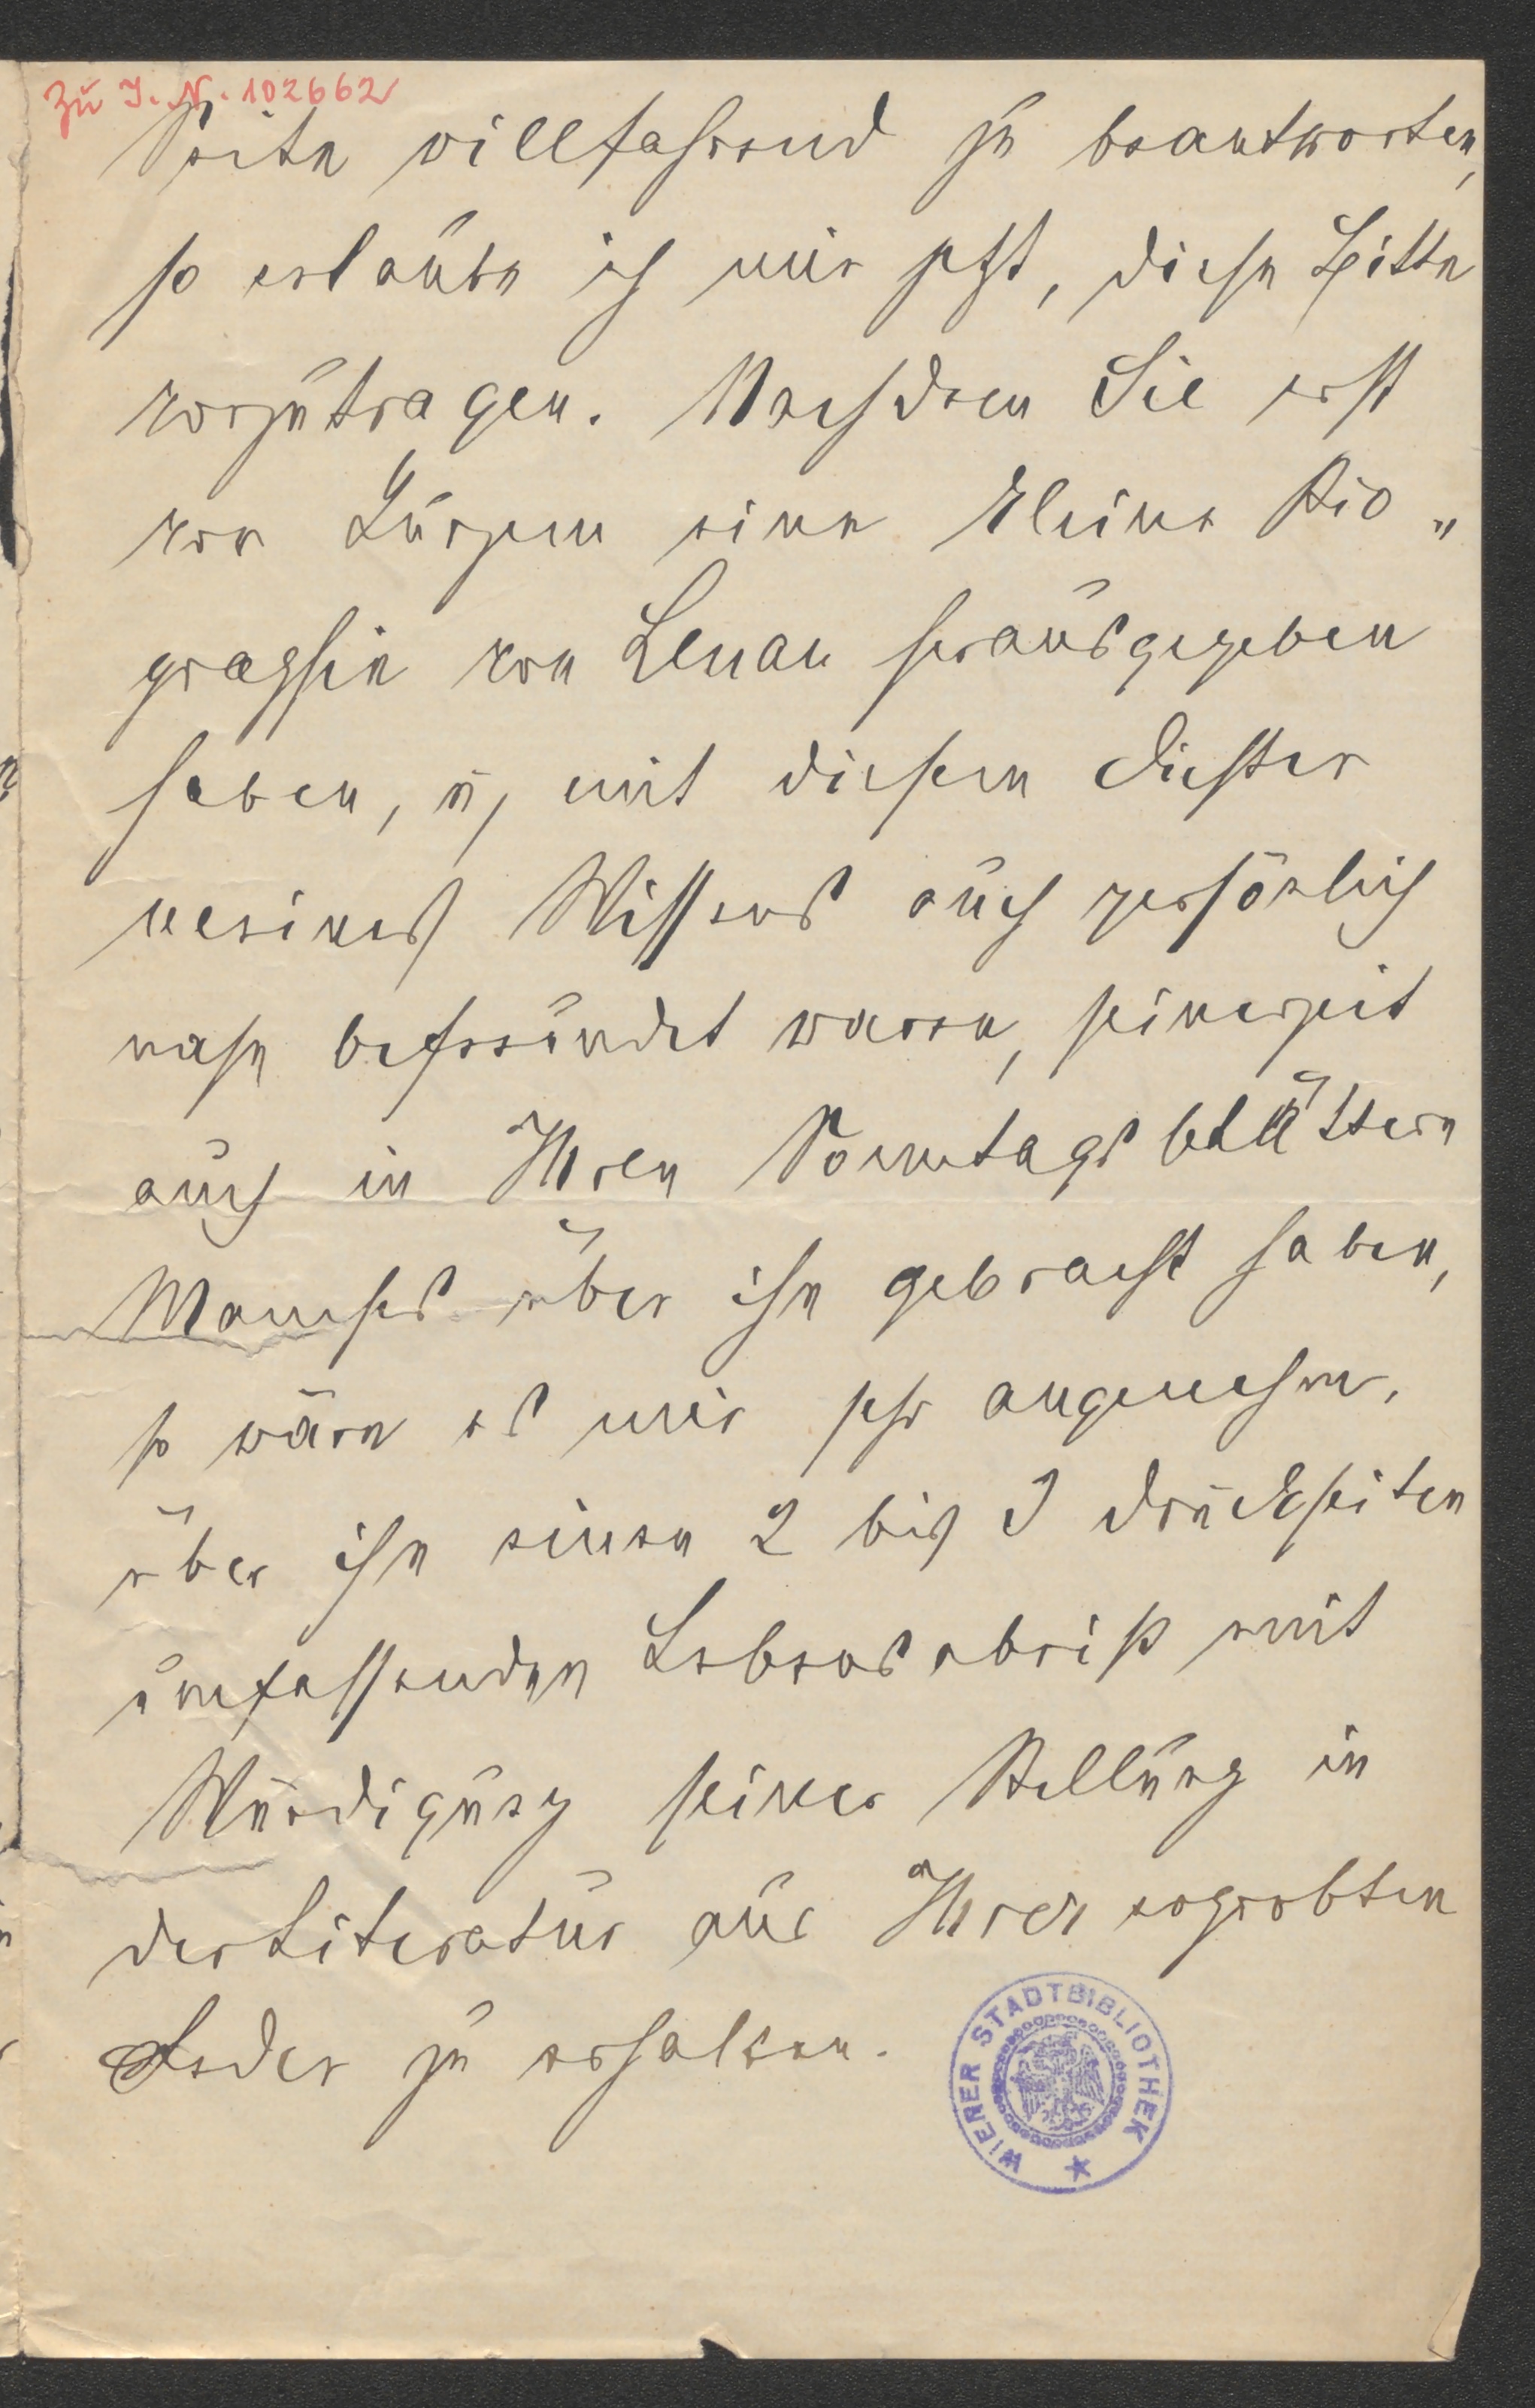 Zu I. N. 102662
Seite willfahrend zu beantworten,
so erlaube ich mir jetzt, diese Bitte
vorzutragen. Nachdem Sie erst
vor Kurzem eine kleine Bio„
graphie von Lenau herausgegeben
haben, u, mit diesem Dichter
meines Wissens auch persönlich
nahe befreundet waren, seinerzeit
auch in Ihren Sonntagsblättern
Manches über ihn gebracht haben,
so wäre es mir sehr angenehm,
über ihn einen 2 bis 3 Druckseiten
umfassenden Lebensabriß mit
Würdigung seiner Stellung in
der Literatur aus Ihrer erprobten
Feder zu erhalten.
WIENER STADTBIBLIOTHEK